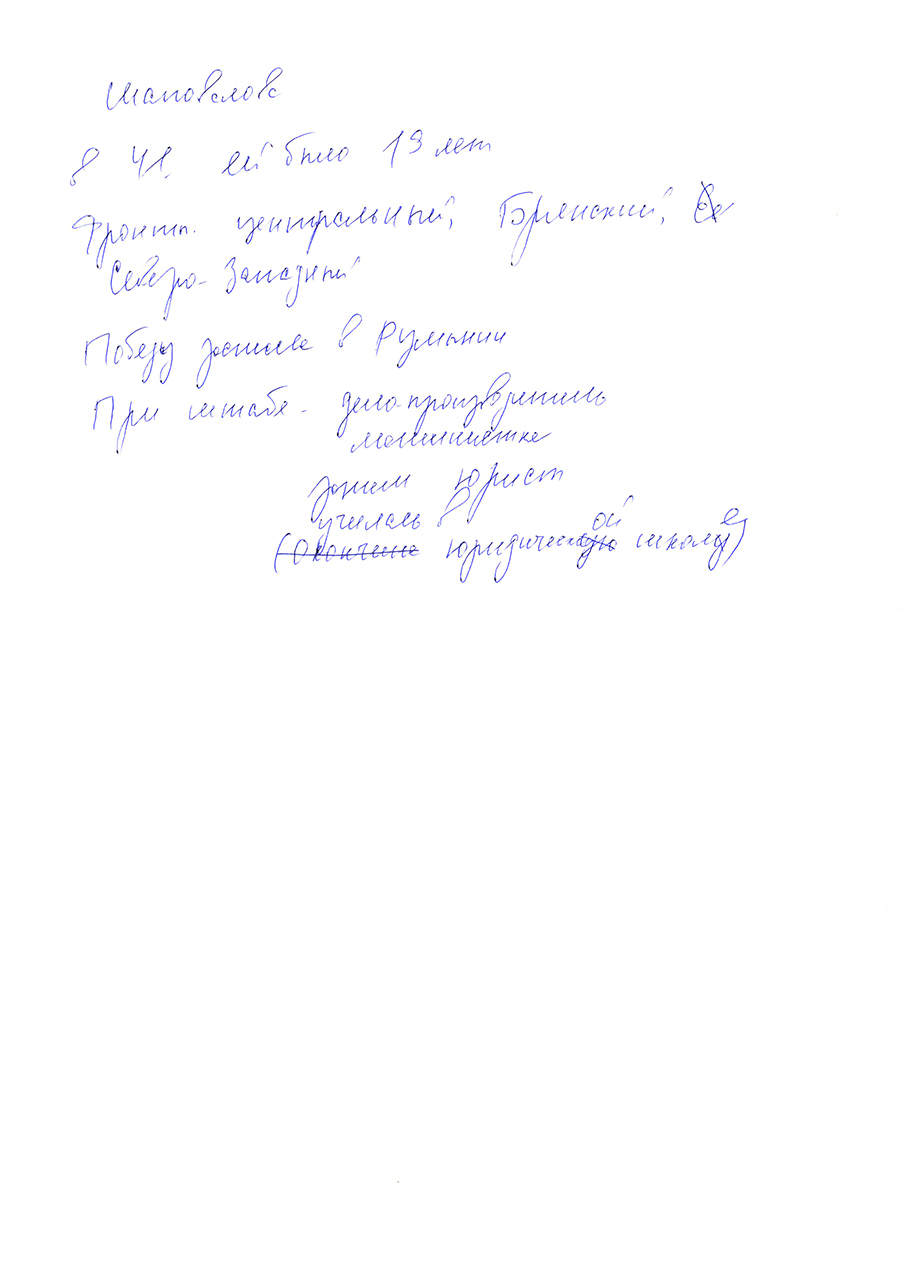 Шаповалова
в 41. ей было 19 лет
Фронты. центральный, Брянский, Се
Северо-Западный
Победу застала в Румынии
При штабе - дело-производитель
машинистка
затем юрист
училась в
(Окончила юридической школе)